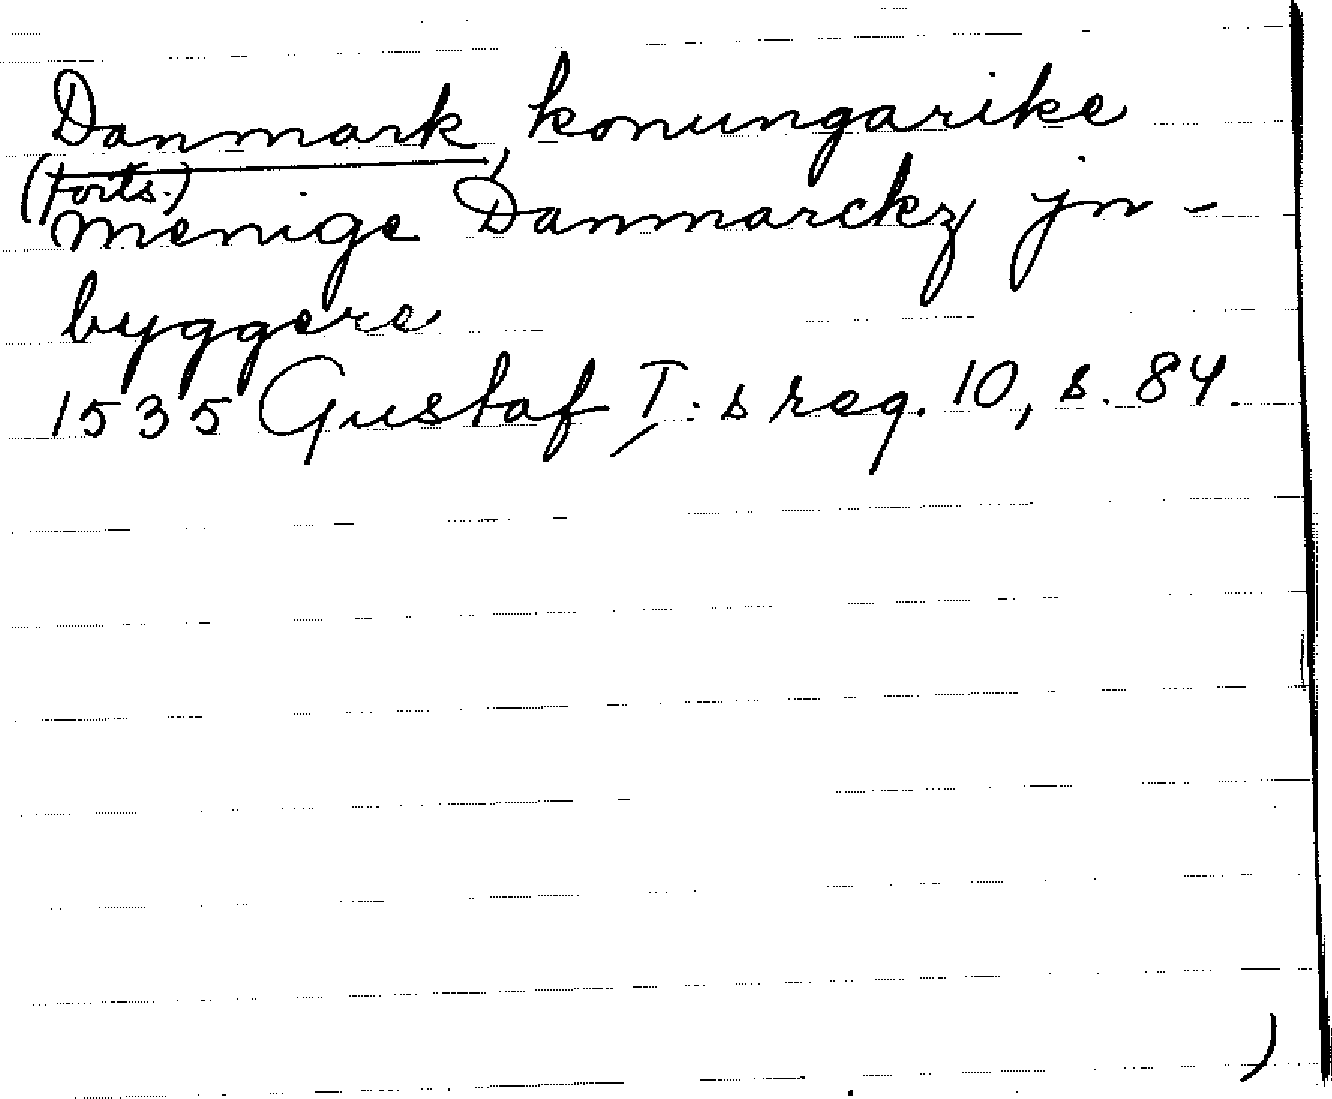 Danmark, konungarike
(forts.)
Menige Danmarckz jn-
byggere
1535 Gustaf I:s reg. 10, s. 84.
)